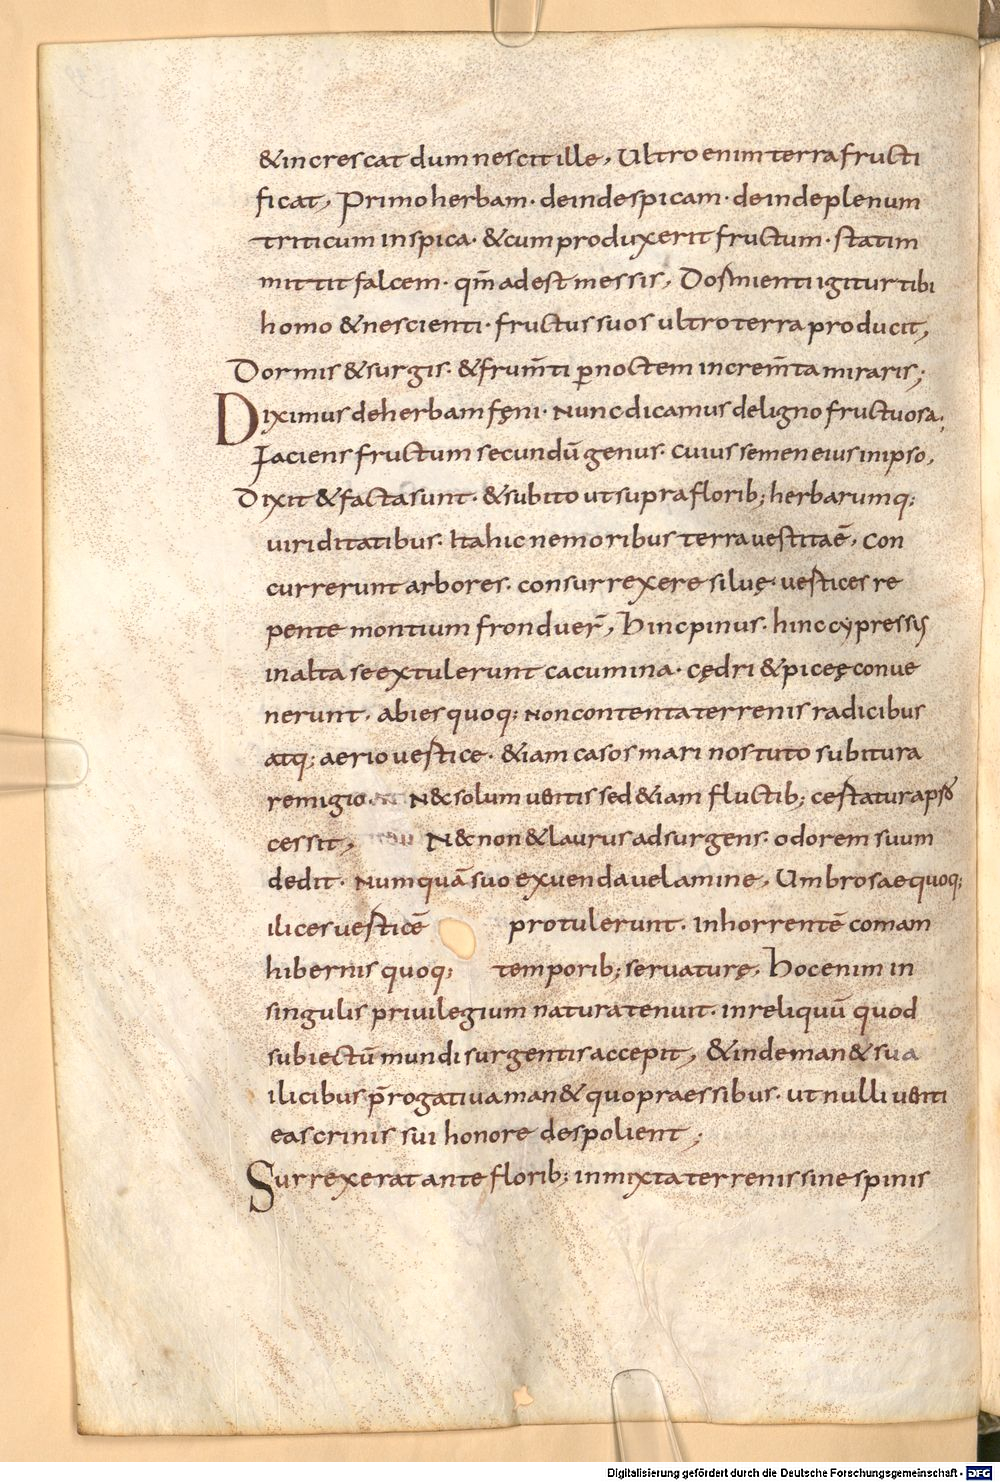 & increscat dum nescit ille, Ultro enim terra fructi
ficat, Primo herbam· deinde spicam· deinde plenum
triticum in spica· & cum produxerit fructum· statim
mittit falcem· qm̄ adest messis, Dormienti igitur tibi
homo & nescienti· fructus suos ultro terra producit,
Dormis & surgis· & frum̄ti p noctem increm̄ta miraris;
Diximus de herbam fęni· Nunc dicamus de ligno fructuosa;
Faciens fructum secundū genus· cuius semen eius in ipso,
Dixit & facta sunt· & subito ut supra florib; herbarumq;
uiriditatibus· Ita hic nemoribus terra uestita ē, con
currerunt arbores· consurrexere siluę· uertices re
pente montium fronduer̄, Hinc pinus· hinc cypressis
in alta se extulerunt cacumina· cędri & piceę conue
nerunt, abies quoq; Non contenta terrenis radicibus
atq; aerio uertice· & iam casos mari nos tuto subitura
remigio. N& solum uentis sed & iam fluctib; certatura
cessit, N& non & laurus adsurgens· odorem suum
dedit· Numquā suo exuenda uelamine, Umbrosae quoq;
ilices uerticē protulerunt· in horrentē comam
hibernis quoq; temporib; seruaturę, Hoc enim in
singulis priuilegium natura tenuit· in reliquū quod
subiectū mundi surgentis accepit, & inde man& sua
ilicibus p̄rogatiua man& quo praessibus· ut nulli uenti
eas crinis sui honore despolient;
Surrexerat ante florib; inmixta terrenis sine spinis
Digitalisierung gefördert durch die Deutsche Forschungsgemeinschaft - DFG